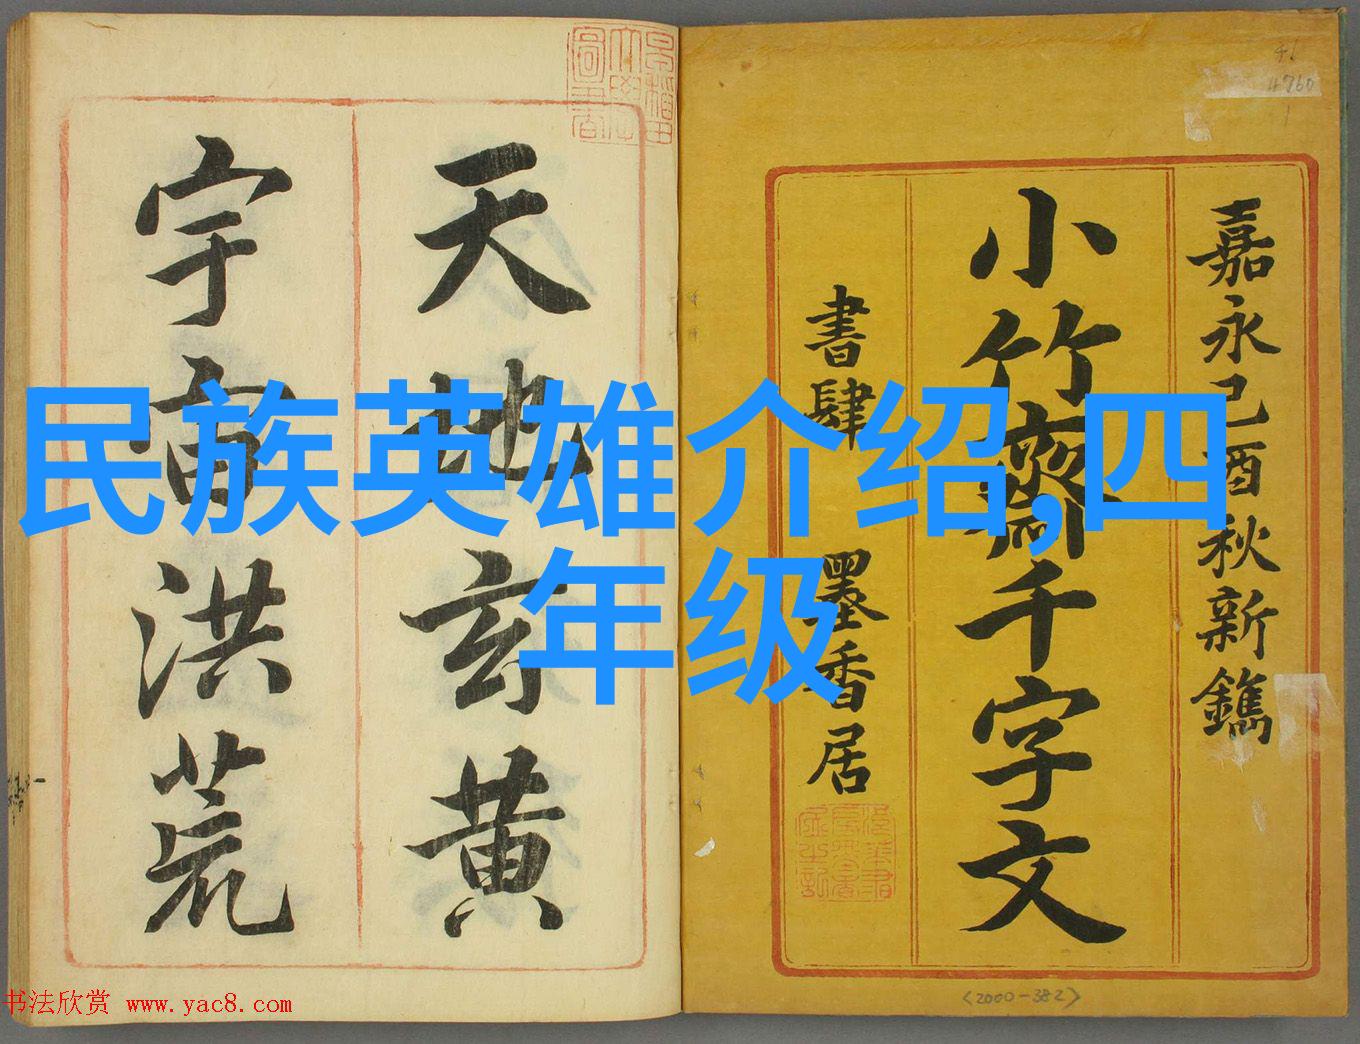 民族英雄介绍,四
年级
嘉永己酉秋新鐫
小竹齋千字文
書肆 墨香居
天地玄黄
宇宙洪荒
46
4760
<2000-382>
书法欣赏 www.yac8.com